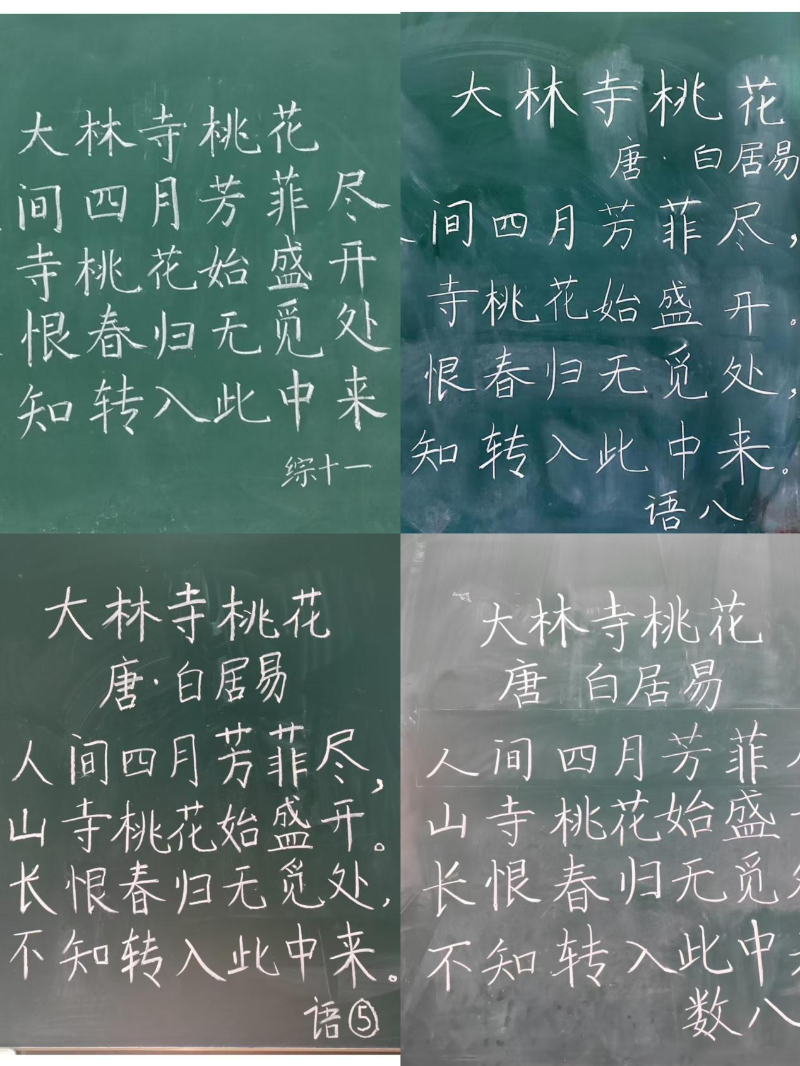 大林寺桃花
间四月芳菲尽
寺桃花始盛开
恨春归无觅处
知转入此中来
综十一
大林寺桃花
唐·白居易
间四月芳菲尽，
寺桃花始盛开。
恨春归无觅处，
知转入此中来。
语八
大林寺桃花
唐·白居易
人间四月芳菲尽，
山寺桃花始盛开。
长恨春归无觅处，
不知转入此中来。
语⑤
大林寺桃花
唐 白居易
人间四月芳菲
山寺桃花始盛
长恨春归无觅
不知转入此中
数八